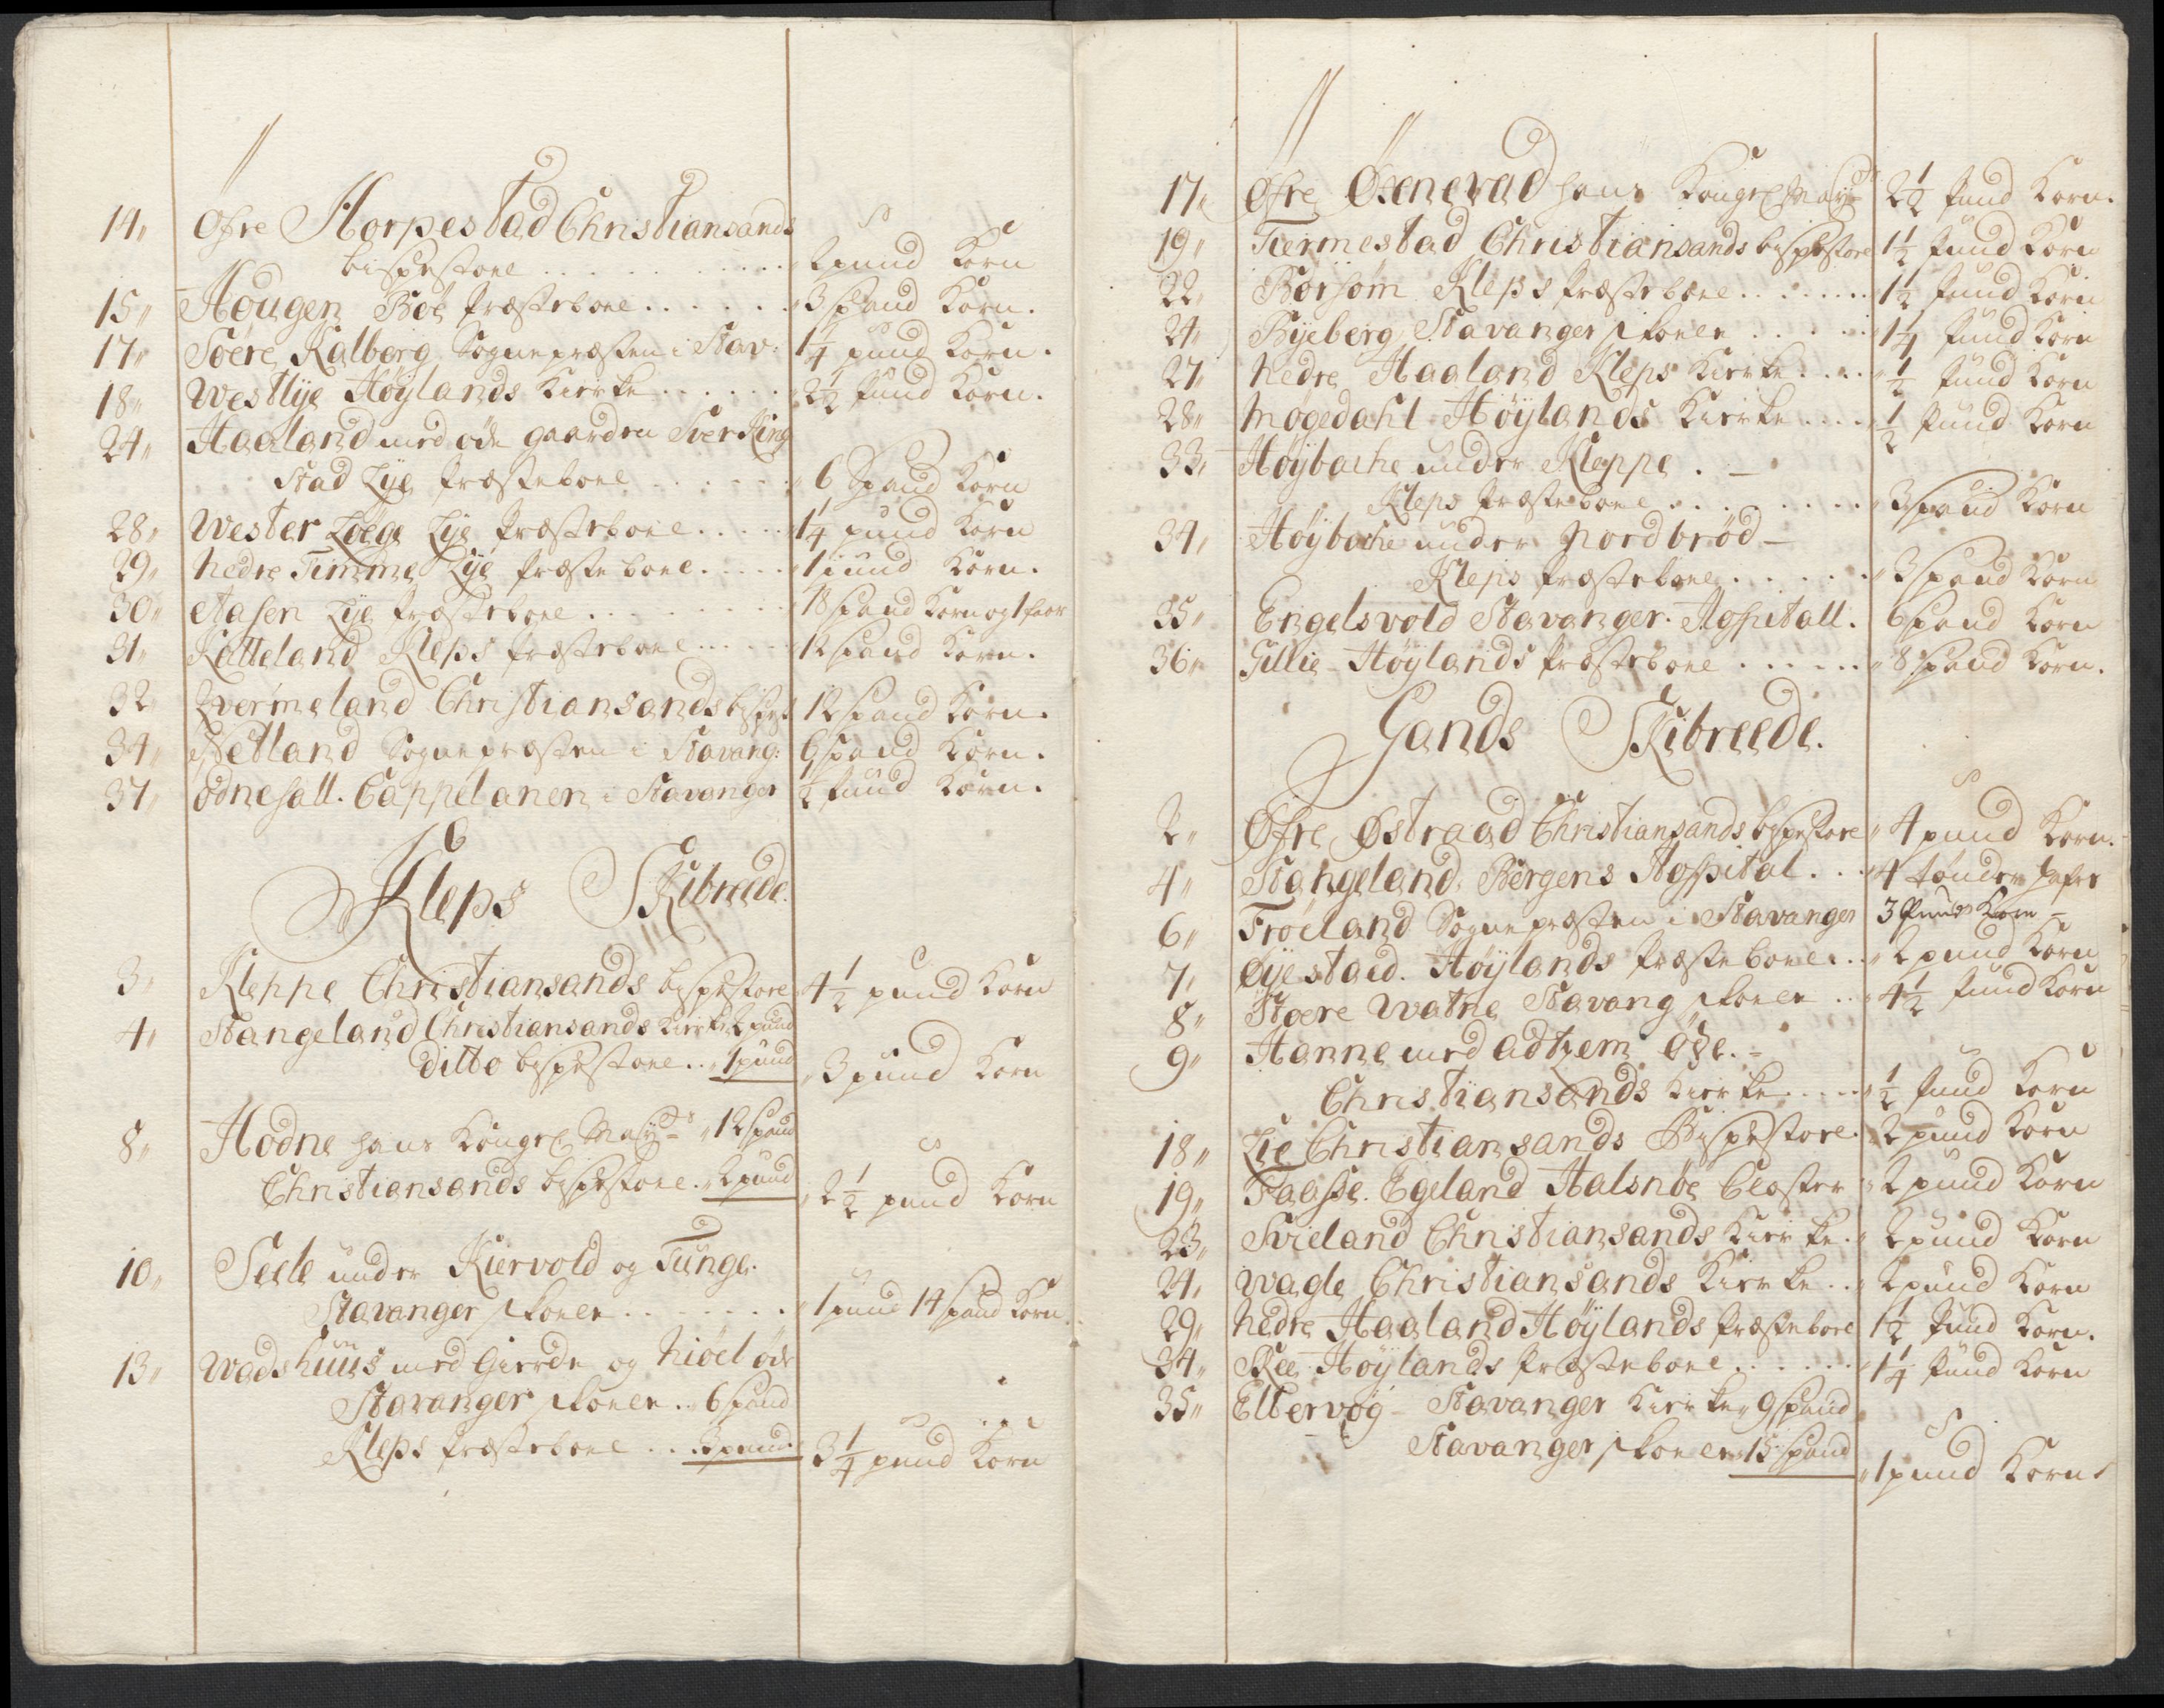 14 Øfre Horpestad Christiansands
bispestoel . . . 2 pund Korn
15 Hougen Boe Præsteboel . . . 3 spand Korn.
17 Søere Kalberg Sognepræsten i Stav: 1 1/4 pund Korn.
18 Westlye Høylands Kierke . . . 2 1/2 pund Korn.
24 Haaland med øde gaarden Sverting
Stad Lye Præsteboel . . . 6 Spand Korn
28 Wester Loege Lye Præsteboel . . . 1 1/4 pund Korn
29 Nedre Timme Lye Præsteboel . . . 1 pund Korn.
30 Aasen Lye Præsteboel . . . 18 spand Korn og 1 faar
31 Katteland Kleps Præsteboel . . . 12 spand Korn.
32 Qvermeland Christiansands bispest 12 spand Korn.
34 Netland Sognepræsten i Stavang: 6 spand Korn.
37 Odnesall. Cappelanen i Stavanger 1/2 pund Korn.
Kleps Skibreede.
3 Kleppe Christiansands bispestoel 4 1/2 pund Korn
4 Stangeland Christiansands Kierke 2 pund
Ditto bispestoel . . 1 pund 3 pund Korn
8 Hodne hans Kongel Mayts 12 spand
Christiansands bispestoel. 2 pund 2 1/2 pund Korn
10 Seele under Kiervold og Tunge.
Stavanger skolen . . . 1 pund 14 spand Korn
13 Wadshuus med Gierde og Niøel øde
Stavanger skolen . . 6 spand
Kleps Præsteboel . . . 3 pund. 3 1/4 pund Korn
17 Øfre Øxnevad hans Kongel Mayts 2 1/2 pund Korn.
19 Tiermestad Christiansands bispestoel 1 1/2 pund Korn
22 Borsøm Kleps Præsteboel . . . 1 1/2 pund Korn
24 Byeberg Stavanger skolen . . . 1 1/4 pund Korn
27 Nedre Haaland Kleps Kierke . . . 1/2 pund Korn
28 Mogedahl Høylands Kierke . . . 1/2 pund Korn
33 Høybache under Kleppe . —
Kleps Præsteboel . . . 3 spand Korn
34 Høybache under Nordbrød —
Kleps Præsteboel . . . 3 spand Korn
35 Engelsvold Stavanger Hospitall. 6 spand Korn
36 Gillie Høylands Præsteboel . . . 8 spand Korn.
Gands Skibreede.
2 Øfre Østraad Christiansands bispestoel 4 pund Korn.
4 Stangeland, Bergens Hospital . . . 4 tønder hafre
6 Frøeland Sognepræsten i Stavanger 3 Pund Korn
7 Øyestad. Høylands Præsteboel . . . 2 pund Korn
8 Stoere Watne Stavang skolen . . 4 1/2 pund Korn
9 Hanne med adtzem øde.
Christiansands Kierke . . . 1/2 pund Korn
18 Lie Christiansands Bispestoel. 2 pund Korn
19 Faasse. Egeland Halsnøe Closter 2 pund Korn
23 Svieland Christiansands Kierke. 2 pund Korn
24 Wagle Christiansands Kierke . . 2 pund Korn
29 Nedre Haaland Høylands Præsteboel 1 1/2 pund Korn.
34 Skee Høylands Præsteboel . . . 1 1/4 pund Korn
35 Eltervog Stavanger Kierke 9 spand
Stavanger skolen 15 spand 1 pund Korn